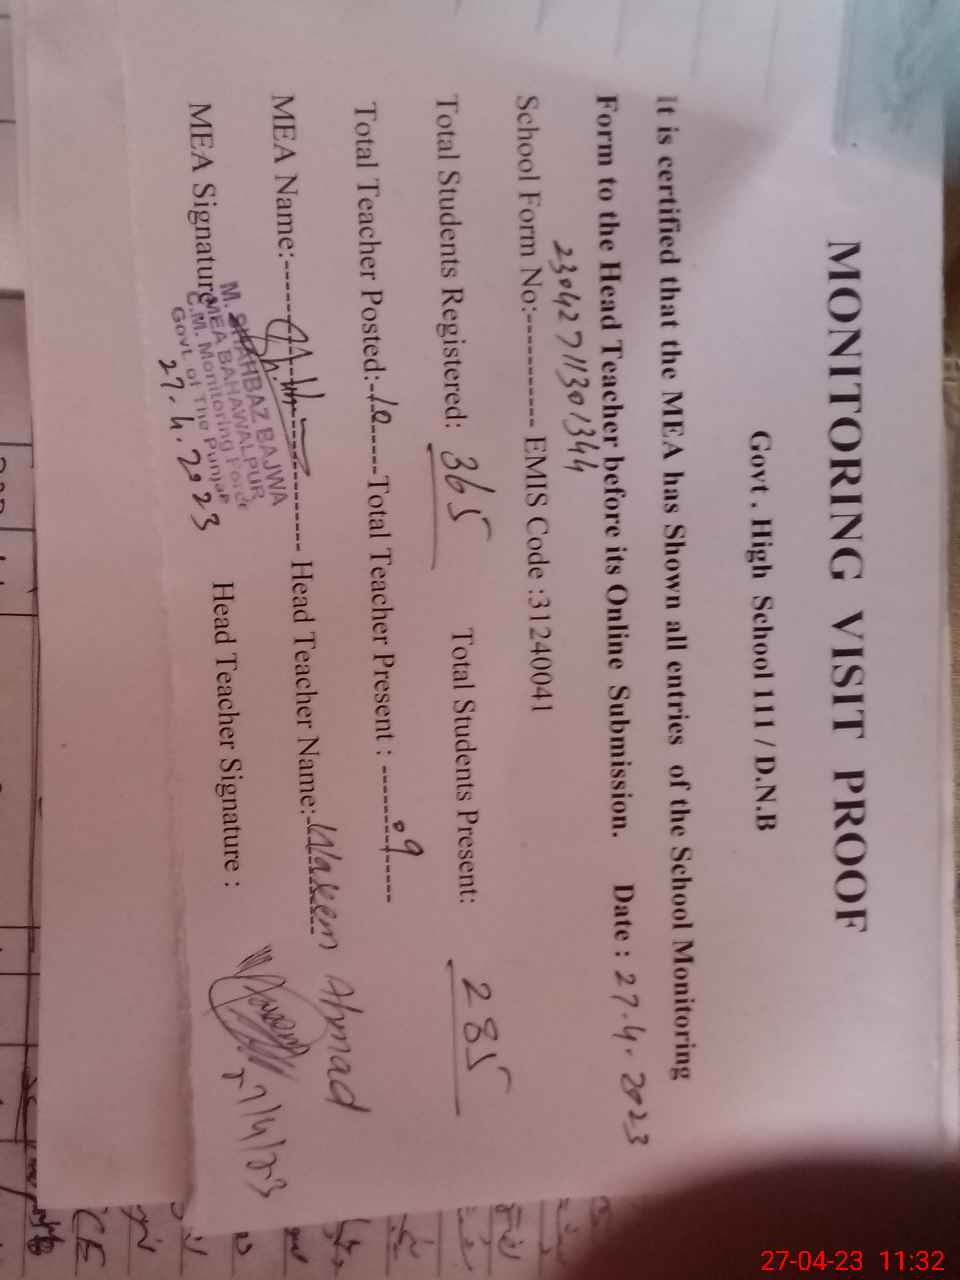 MONITORING VISIT PROOF
Govt. High School 111 / D.N.B
It is certified that the MEA has Shown all entries of the School Monitoring
Form to the Head Teacher before its Online Submission. Date : 27.4.2023
23042711301344
School Form No:----------- EMIS Code :31240041
Total Students Registered: 365 Total Students Present: 285
Total Teacher Posted:-10-----Total Teacher Present : --------09-----
MEA Name:------ ------ Head Teacher Name:-Waseem Ahmad
MEA Signature Head Teacher Signature :
M. SHAHBAZ BAJWA
MEA BAHAWALPUR
C.M. Monitoring Force
Govt. of The Punjab
27.4.2023
27/4/23
CE
27-04-23 11:32